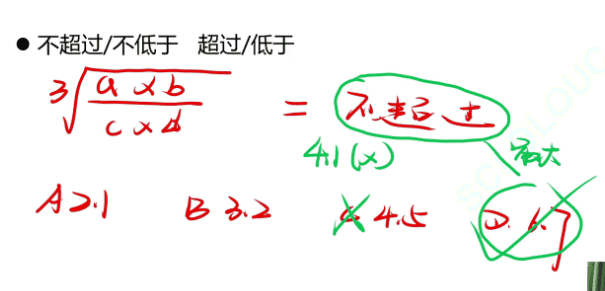 ● 不超过/不低于 超过/低于
3√(a×b / c×d) = 不超过
4.1(x) 最大
A 2.1 B 3.2 C 4.5 D. 6.7